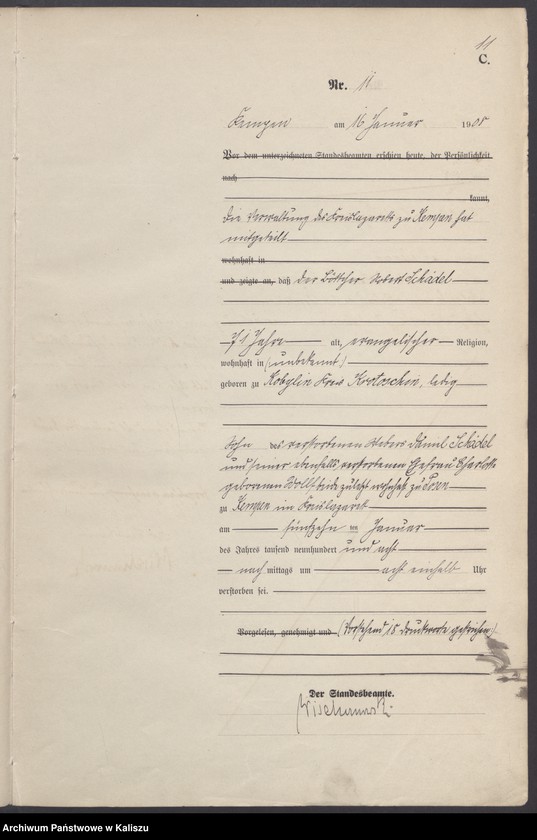 11
C.
Nr. 11
Kempen am 16 Januar 1908
Vor dem unterzeichneten Standesbeamten erschien heute, der Persönlichkeit
nach
kannt,
die Verwaltung des Kreislazarets zu Kempen hat
mitgeteilt
wohnhaft in
und zeigte an, daß der Böttcher Robert Schädel
71 Jahre alt, evangelischer Religion,
wohnhaft in (unbekannt)
geboren zu Kobylin Kreis Krotoschin, ledig
Sohn des verstorbenen Webers Schädel
und seiner ebenfalls verstorbenen Ehefrau Charlotte
geborenen beide zuletzt wohnhaft zu Posen
zu Kempen im Kreislazaret
am fünfzehn ten Januar
des Jahres tausend neunhundert und acht
nach mittags um acht einhalb Uhr
verstorben sei.
Vorgelesen, genehmigt und (Vorstehend 18 Druckworte gestrichen)
Der Standesbeamte.
Archiwum Państwowe w Kaliszu